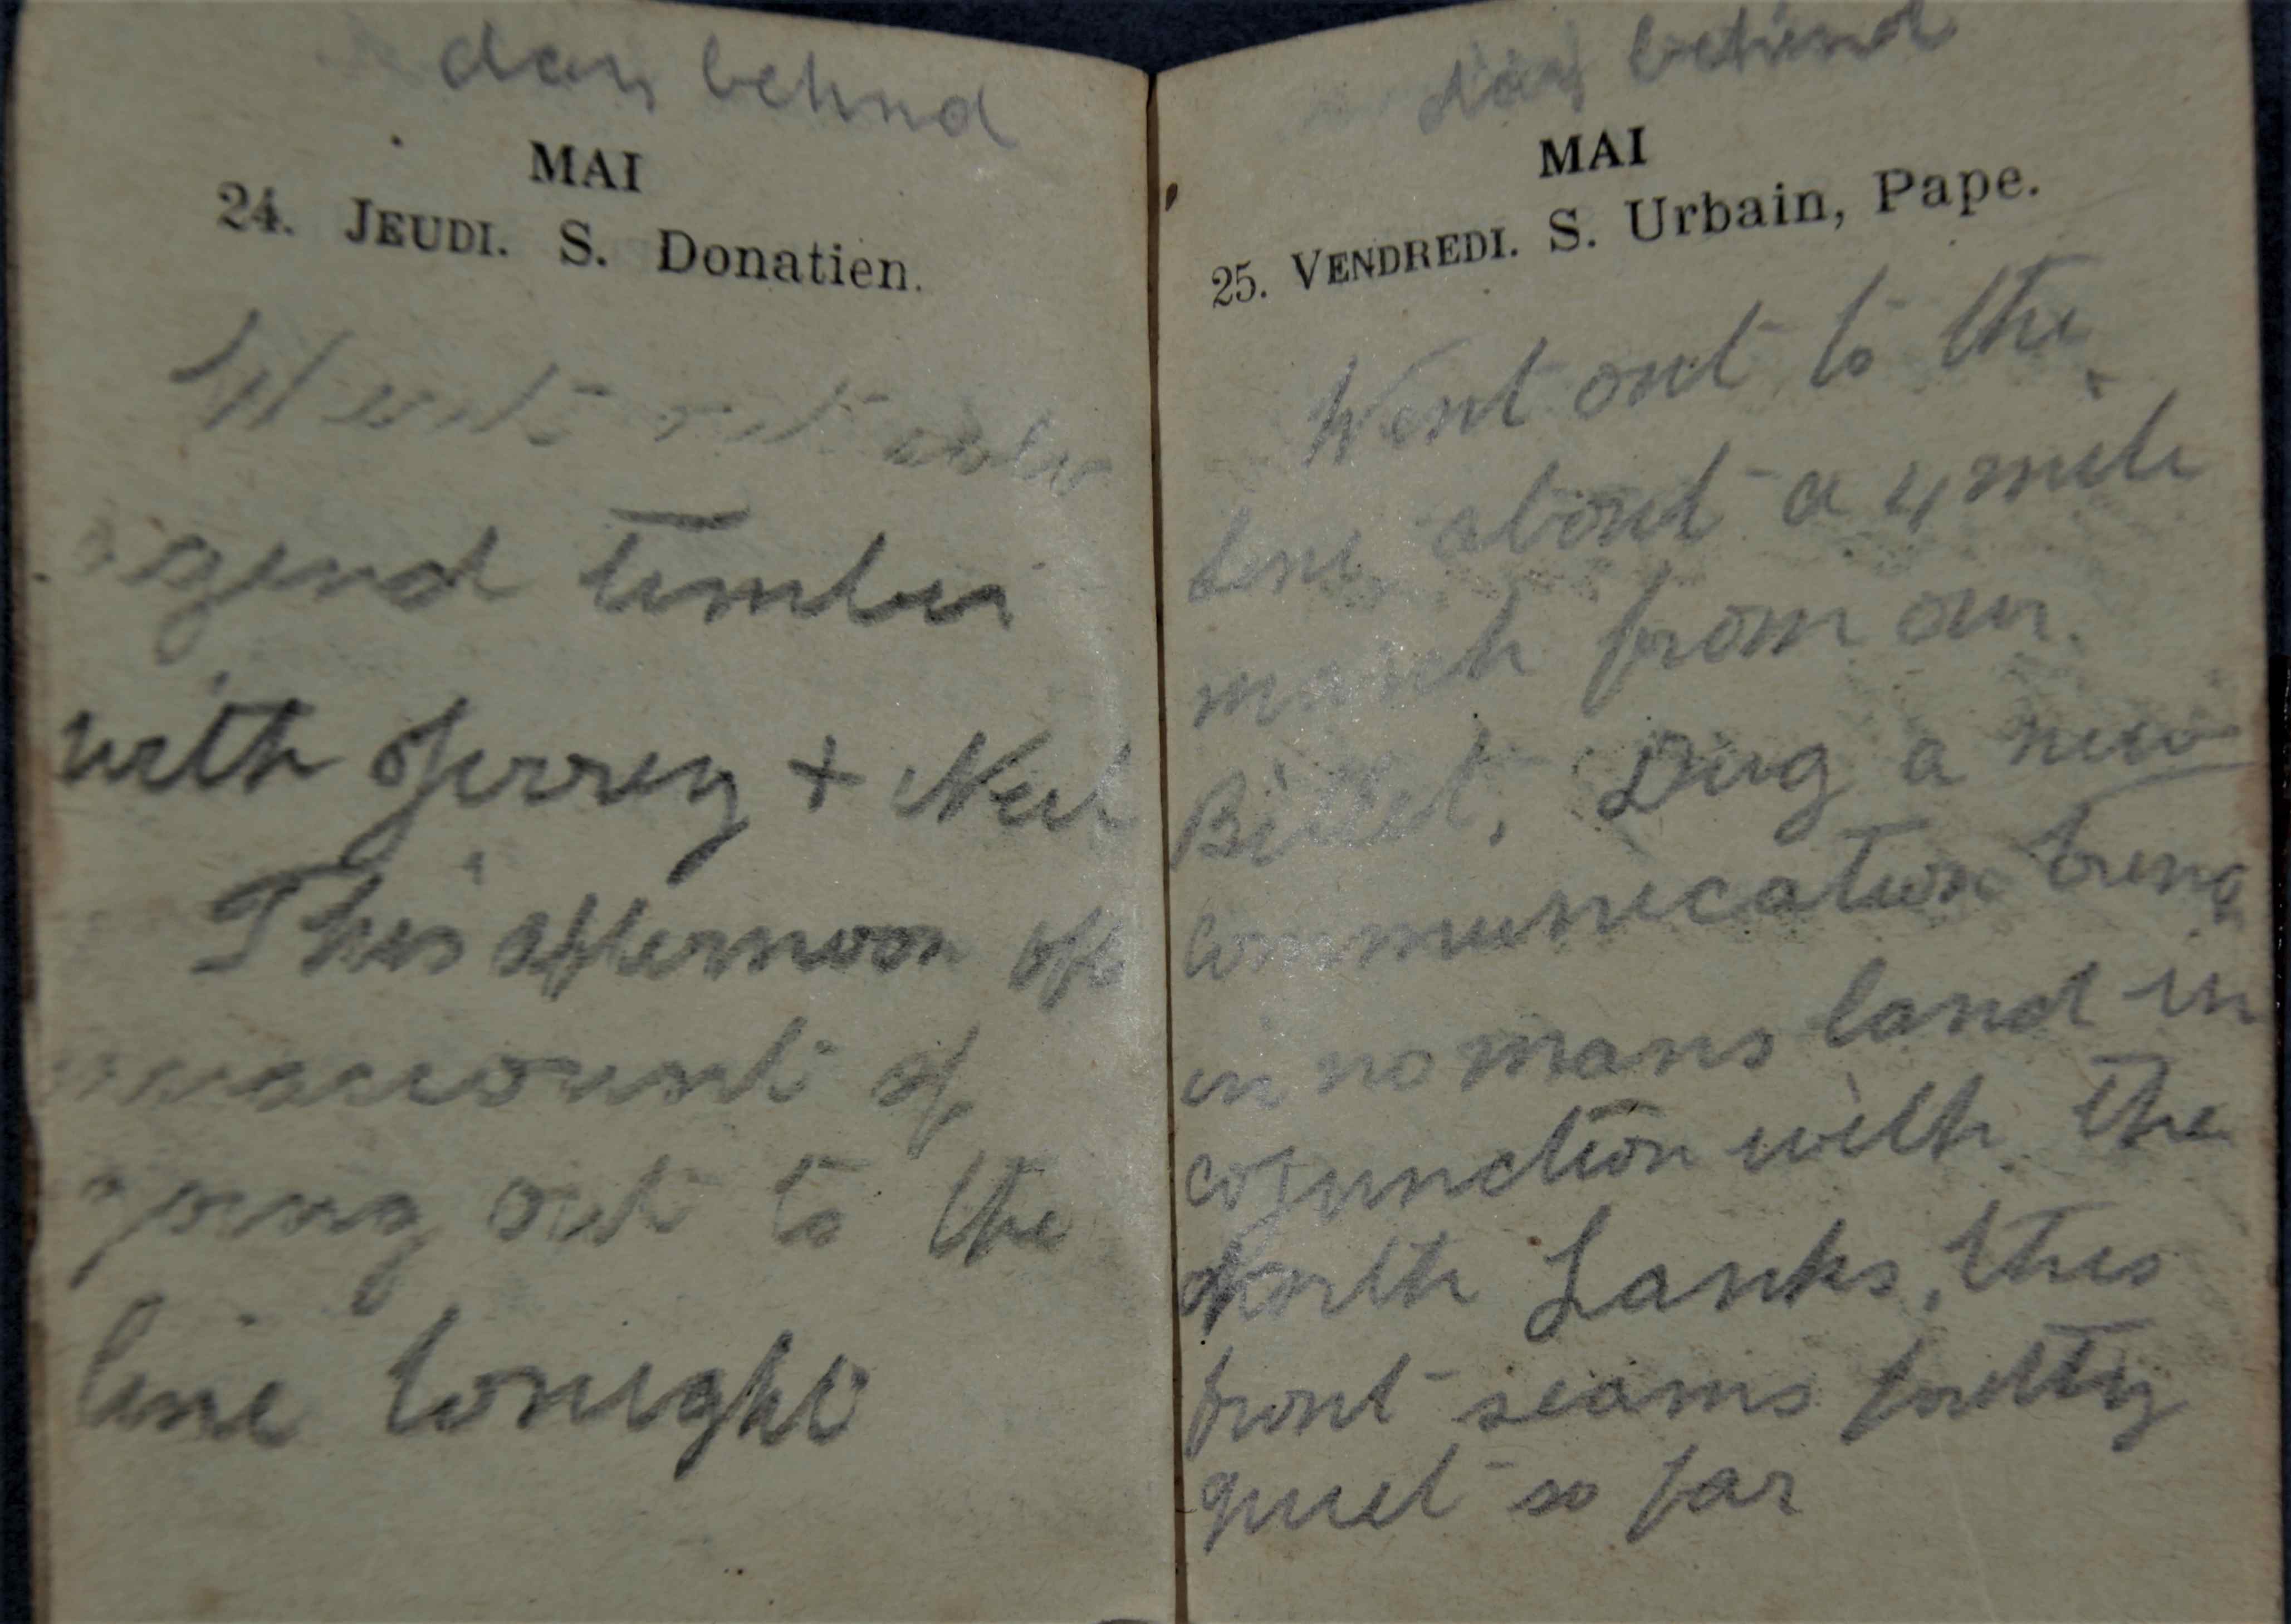 day behind
MAI
24. JEUDI. S. Donatien.
Went out
timber
with Jerrey +
This afternoon off
account of
going out to the
line tonight
day behind
MAI
25. VENDREDI. S. Urbain, Pape.
Went out to the
line about a 4 mile
march from our
Billet. Dug a new
communication trench
in no mans land in
cojunction with the
North Lanks, this
front seams pretty
quiet so far